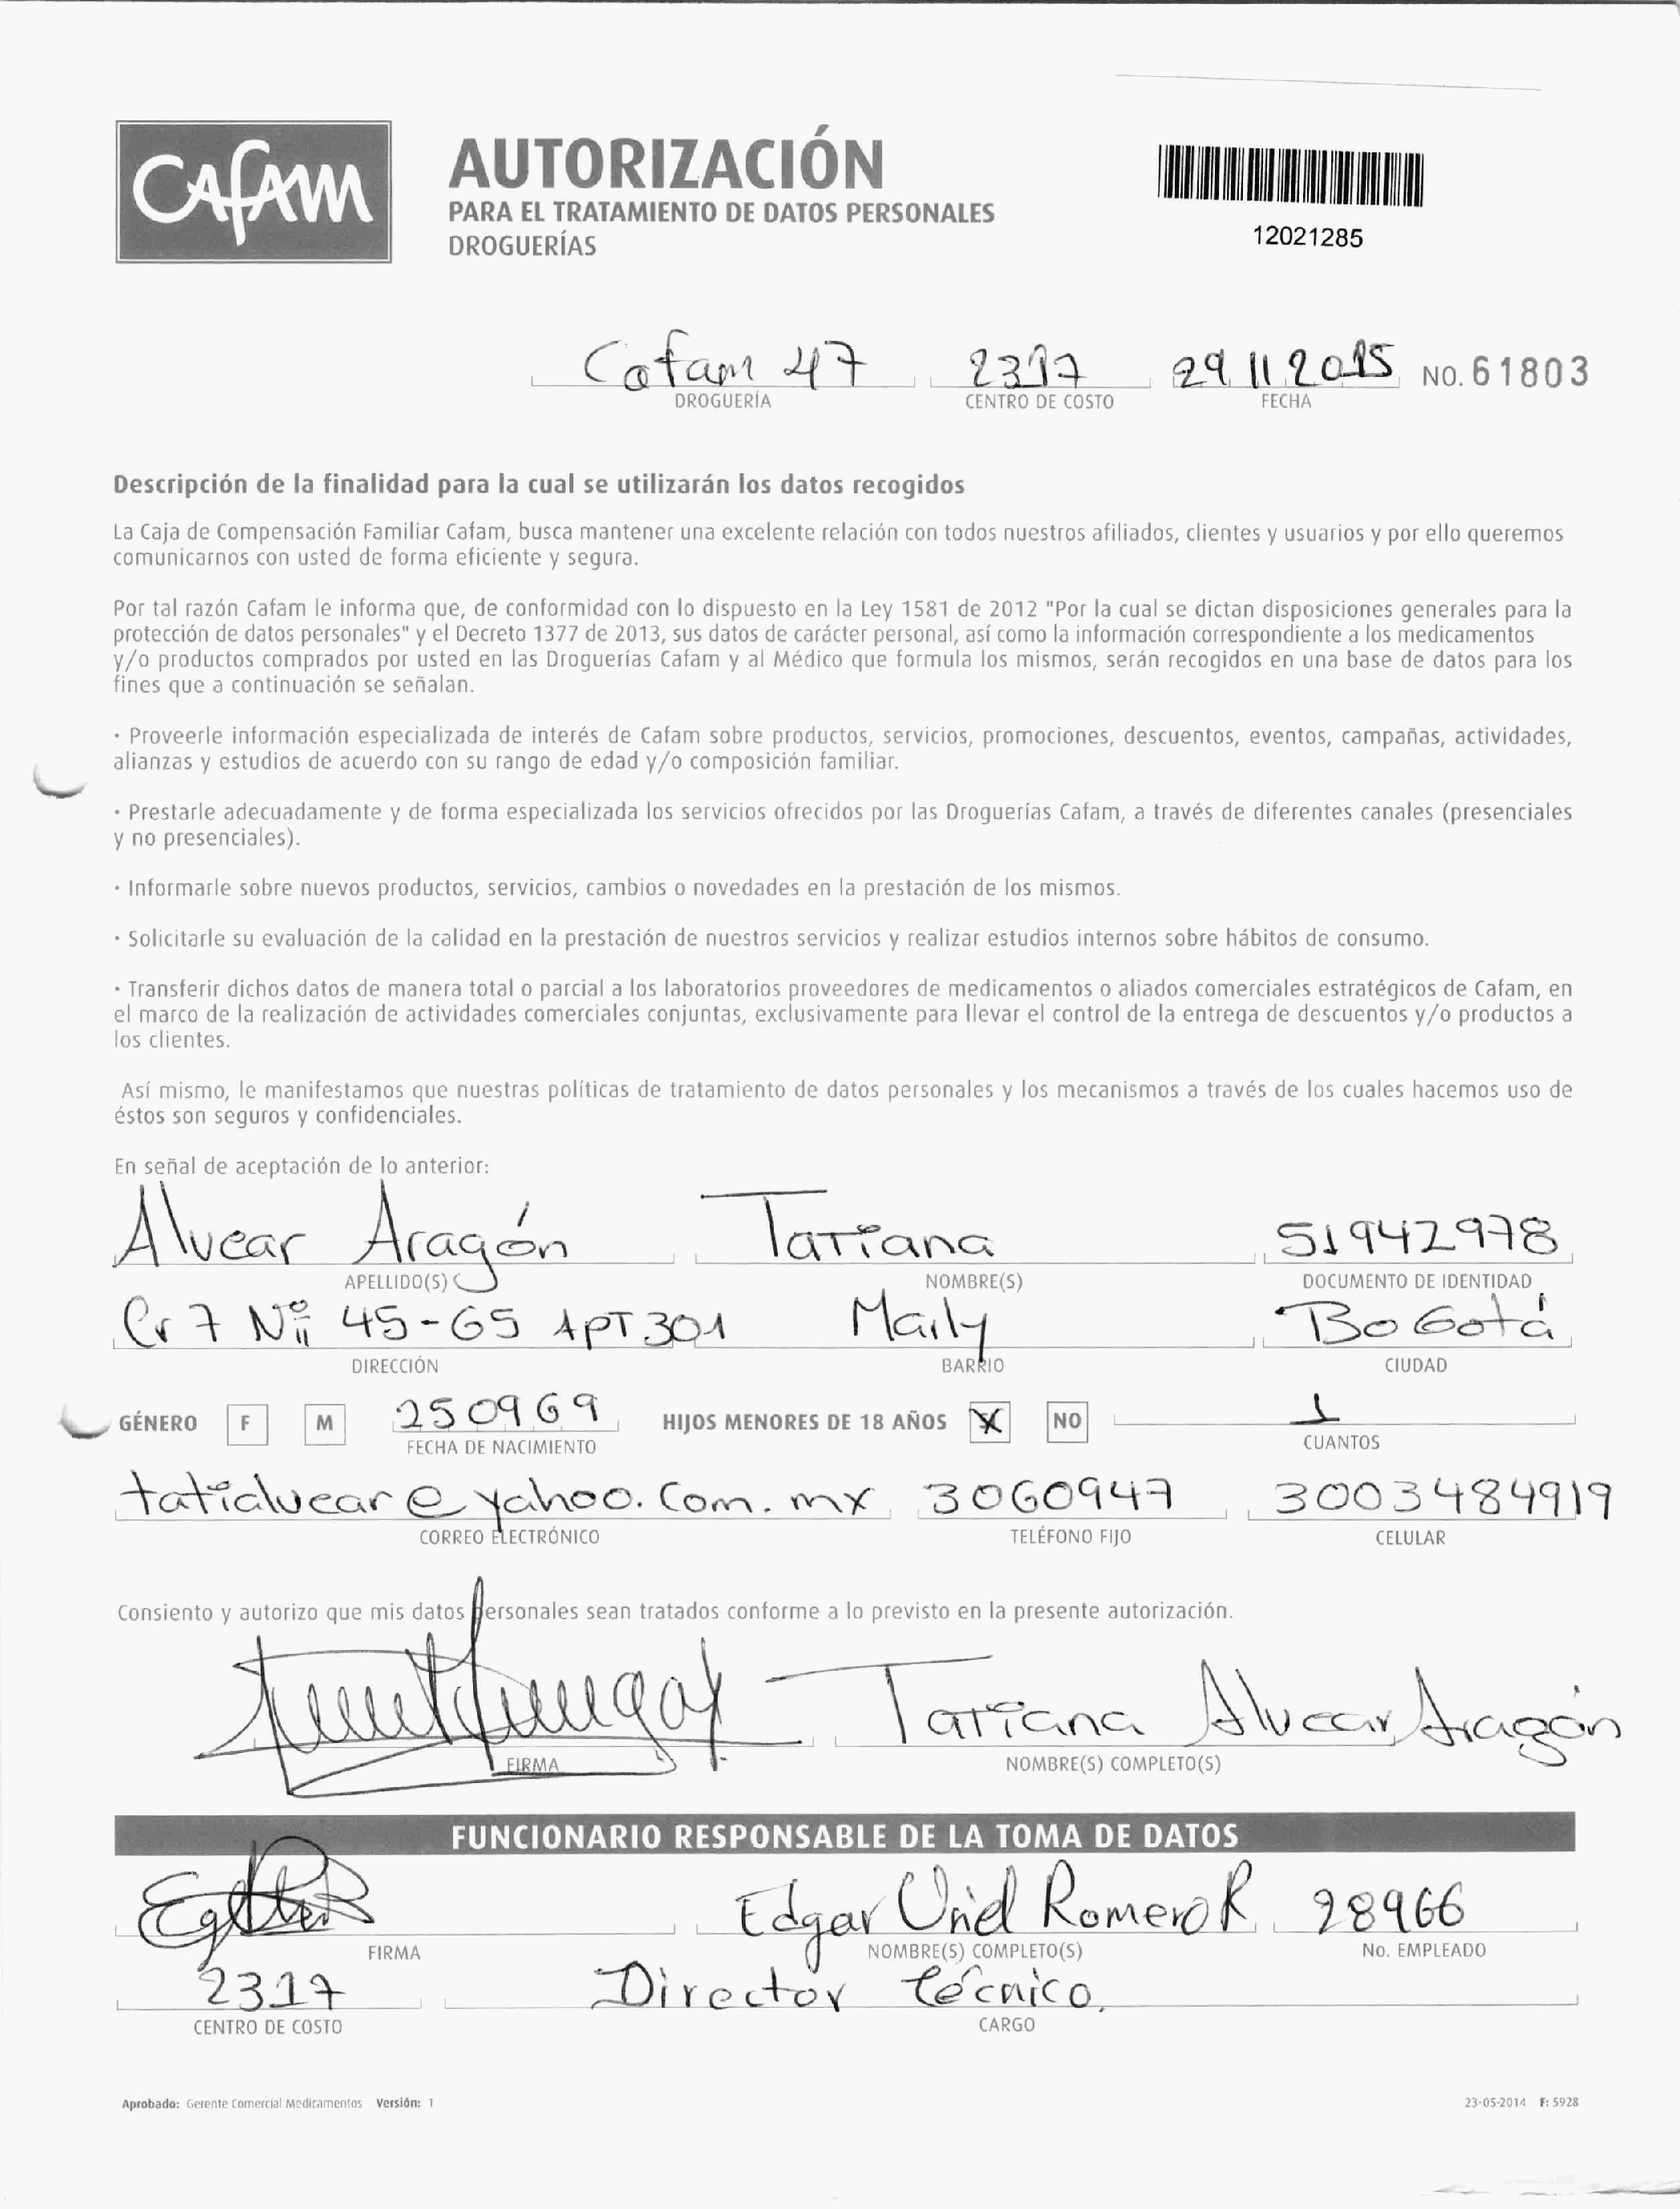 CAfAM
AUTORIZACIÓN
PARA EL TRATAMIENTO DE DATOS PERSONALES
DROGUERÍAS
12021285
Cafam 47 2317 29 11 2015 NO. 61803
DROGUERÍA CENTRO DE COSTO FECHA
Descripción de la finalidad para la cual se utilizarán los datos recogidos
La Caja de Compensación Familiar Cafam, busca mantener una excelente relación con todos nuestros afiliados, clientes y usuarios y por ello queremos
comunicarnos con usted de forma eficiente y segura.
Por tal razón Cafam le informa que, de conformidad con lo dispuesto en la Ley 1581 de 2012 "Por la cual se dictan disposiciones generales para la
protección de datos personales" y el Decreto 1377 de 2013, sus datos de carácter personal, así como la información correspondiente a los medicamentos
y/o productos comprados por usted en las Droguerías Cafam y al Médico que formula los mismos, serán recogidos en una base de datos para los
fines que a continuación se señalan.
· Proveerle información especializada de interés de Cafam sobre productos, servicios, promociones, descuentos, eventos, campañas, actividades,
alianzas y estudios de acuerdo con su rango de edad y/o composición familiar.
· Prestarle adecuadamente y de forma especializada los servicios ofrecidos por las Droguerías Cafam, a través de diferentes canales (presenciales
y no presenciales).
· Informarle sobre nuevos productos, servicios, cambios o novedades en la prestación de los mismos.
· Solicitarle su evaluación de la calidad en la prestación de nuestros servicios y realizar estudios internos sobre hábitos de consumo.
· Transferir dichos datos de manera total o parcial a los laboratorios proveedores de medicamentos o aliados comerciales estratégicos de Cafam, en
el marco de la realización de actividades comerciales conjuntas, exclusivamente para llevar el control de la entrega de descuentos y/o productos a
los clientes.
Así mismo, le manifestamos que nuestras políticas de tratamiento de datos personales y los mecanismos a través de los cuales hacemos uso de
éstos son seguros y confidenciales.
En señal de aceptación de lo anterior:
Alvear Aragón Tatiana 51942978
APELLIDO(S) NOMBRE(S) DOCUMENTO DE IDENTIDAD
Cr 7 Nº 45-65 APT 301 Marly BoGotá
DIRECCIÓN BARRIO CIUDAD
GÉNERO F M 250969 HIJOS MENORES DE 18 AÑOS X NO 1
FECHA DE NACIMIENTO CUANTOS
tatialvear@yahoo.com.mx 3060947 3003484919
CORREO ELECTRÓNICO TELÉFONO FIJO CELULAR
Consiento y autorizo que mis datos personales sean tratados conforme a lo previsto en la presente autorización.
Tatiana Alvear Aragón
FIRMA NOMBRE(S) COMPLETO(S)
FUNCIONARIO RESPONSABLE DE LA TOMA DE DATOS
Edgar Uriel Romero R 28966
FIRMA NOMBRE(S) COMPLETO(S) No. EMPLEADO
2317 Director técnico.
CENTRO DE COSTO CARGO
Aprobado: Gerente Comercial Medicamentos Versión: 1 23-05-2014 F: 5928